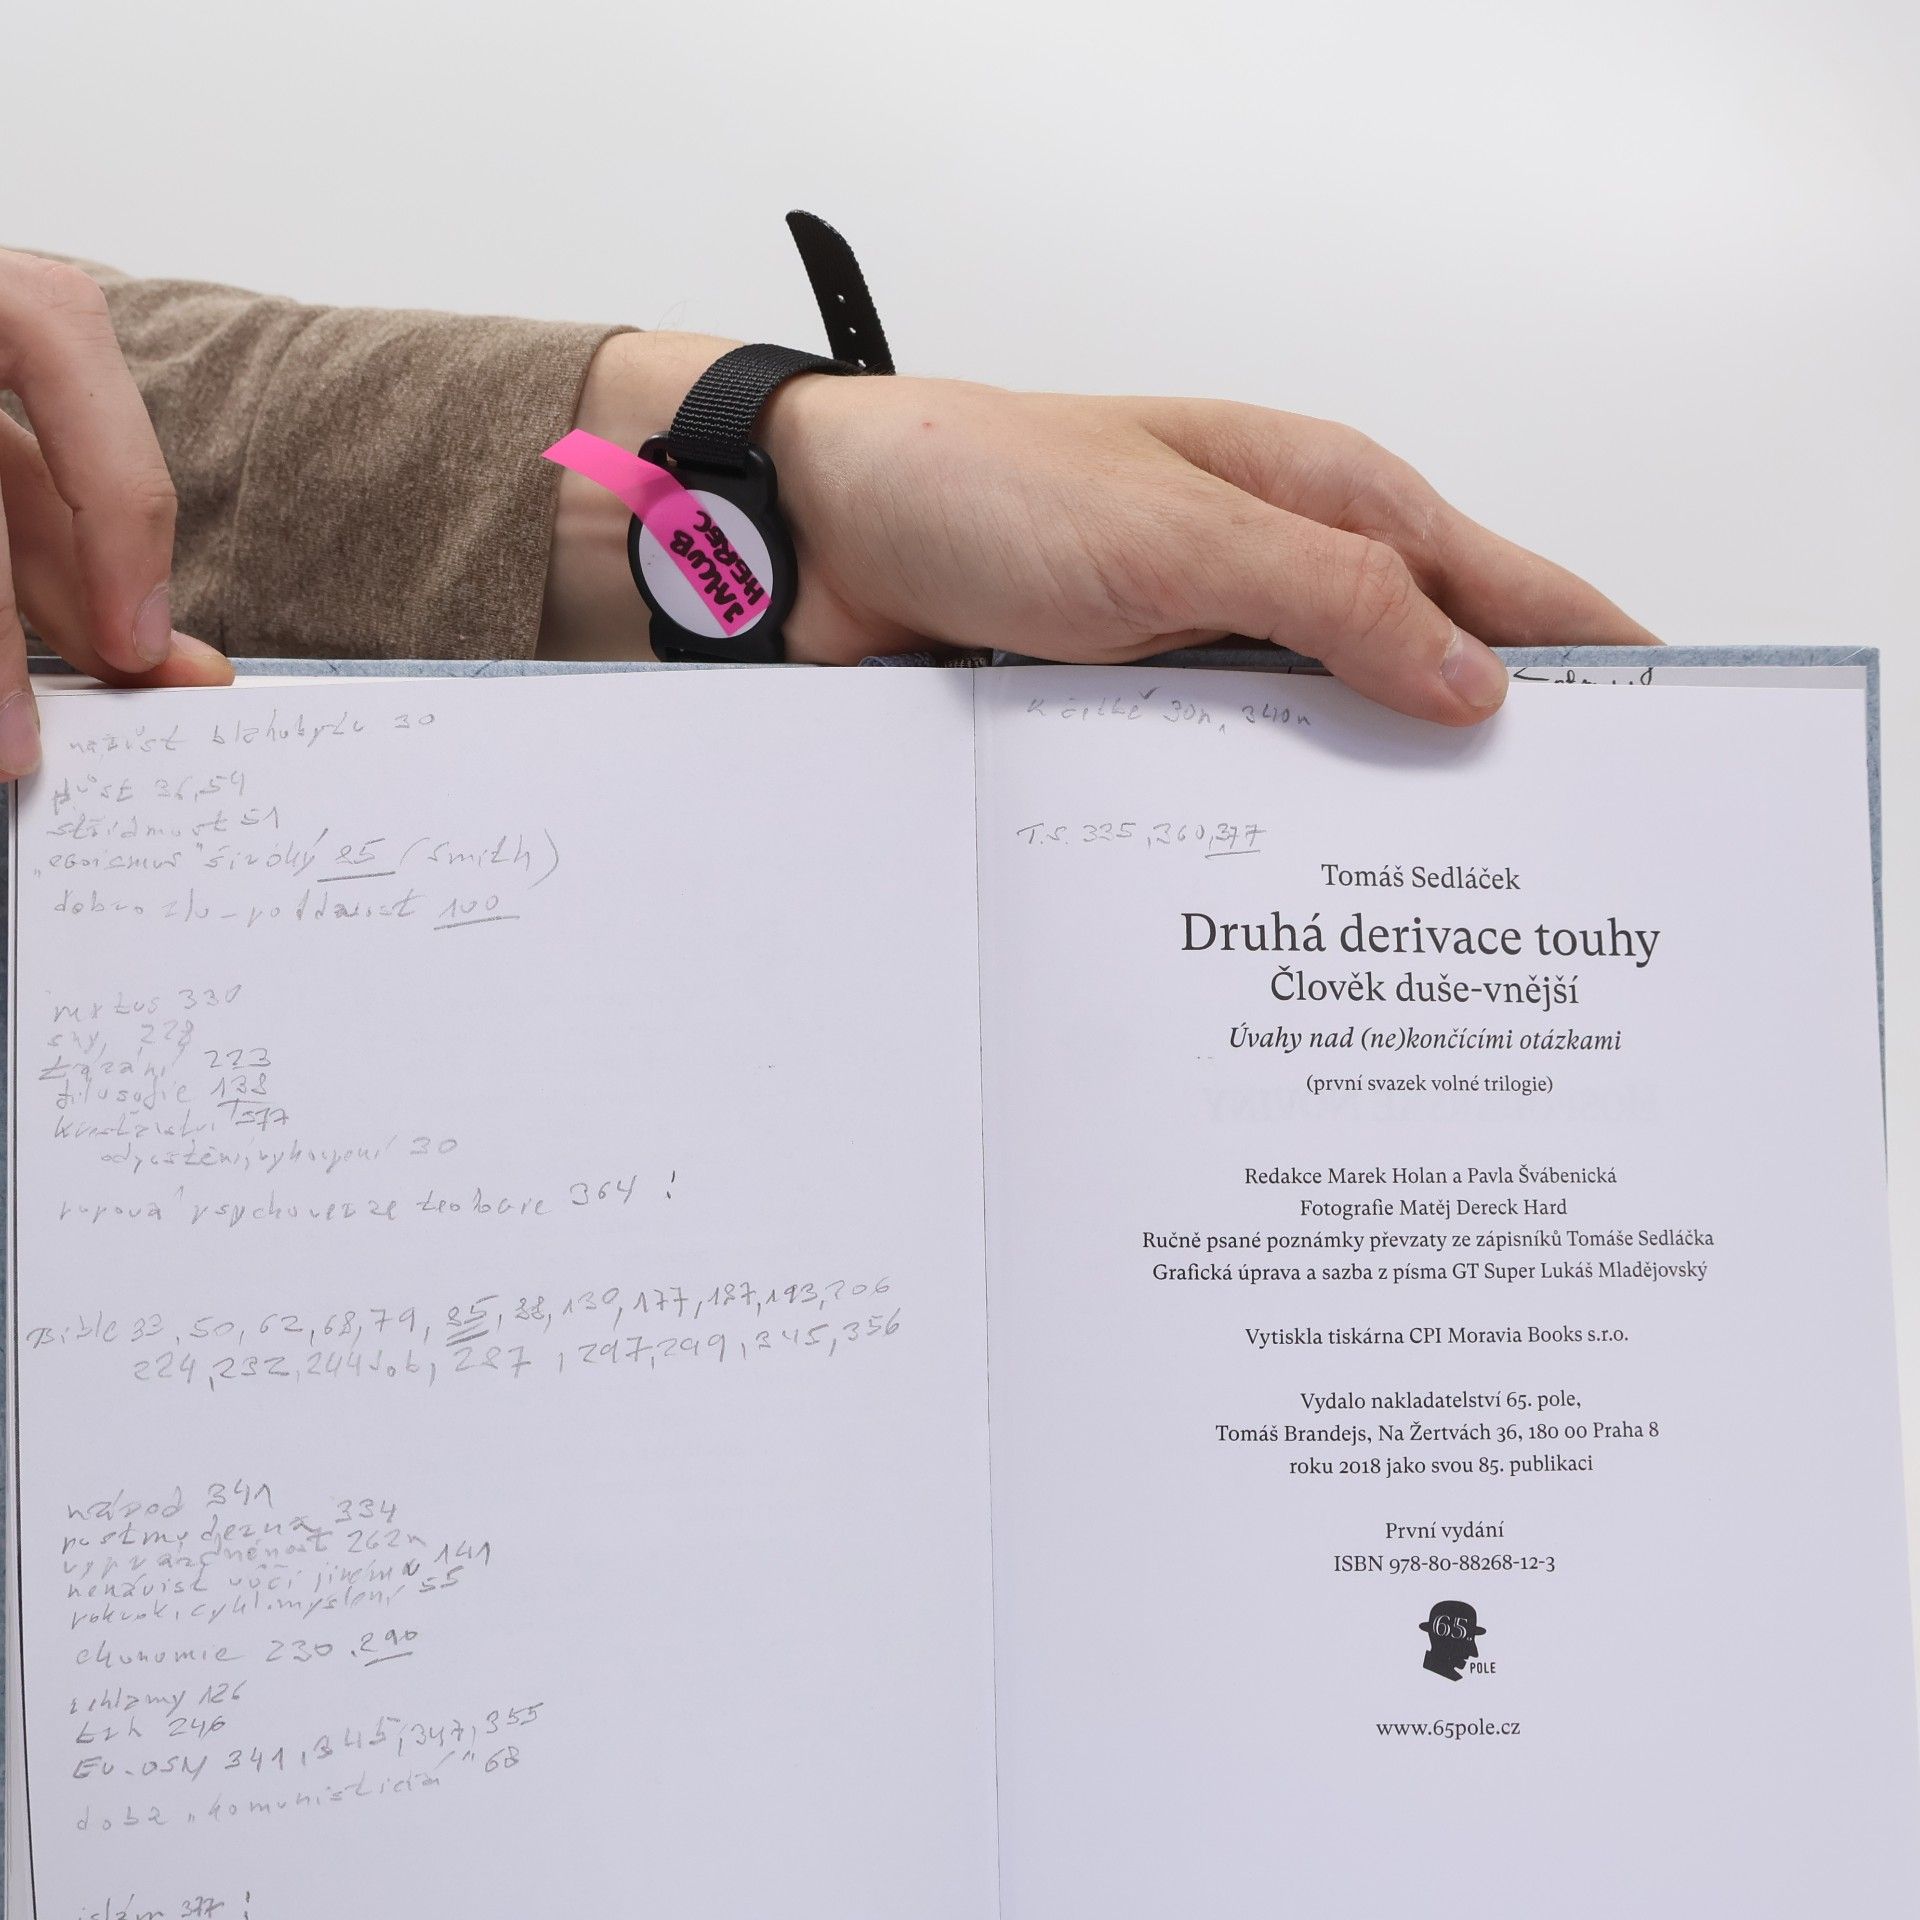 JAKUB
HEREC
nárůst blahobytu 30
půst 36,54
střídmost 51
„egoismus" široký 85 (Smith)
dobro zlo - poddanost 100
mýtus 330
sny, 228
tázání 223
filosofie 138
křesťanství TS 77
odpuštění, vykoupení 30
psychoverze teologie 364 !
Bible 33, 50, 62, 68, 79, 85, 88, 130, 177, 187, 193, 206
224, 232, 244 Job, 287, 297, 299, 345, 356
návod 341
postmoderna 334
vyprázdněnost 262n
nenávist vůči jinému 141
pokrok, cykl. myšlení 55
ekonomie 230, 290
reklamy 126
trh 246
EU-OSN 341, 345, 347, 355
doba „komunistická" 68
islám 377 !
K četbě 30n, 340n
T.S. 335, 360, 377
Tomáš Sedláček
Druhá derivace touhy
Člověk duše-vnější
Úvahy nad (ne)končícími otázkami
(první svazek volné trilogie)
Redakce Marek Holan a Pavla Švábenická
Fotografie Matěj Dereck Hard
Ručně psané poznámky převzaty ze zápisníků Tomáše Sedláčka
Grafická úprava a sazba z písma GT Super Lukáš Mladějovský
Vytiskla tiskárna CPI Moravia Books s.r.o.
Vydalo nakladatelství 65. pole,
Tomáš Brandejs, Na Žertvách 36, 180 00 Praha 8
roku 2018 jako svou 85. publikaci
První vydání
ISBN 978-80-88268-12-3
65.
POLE
www.65pole.cz